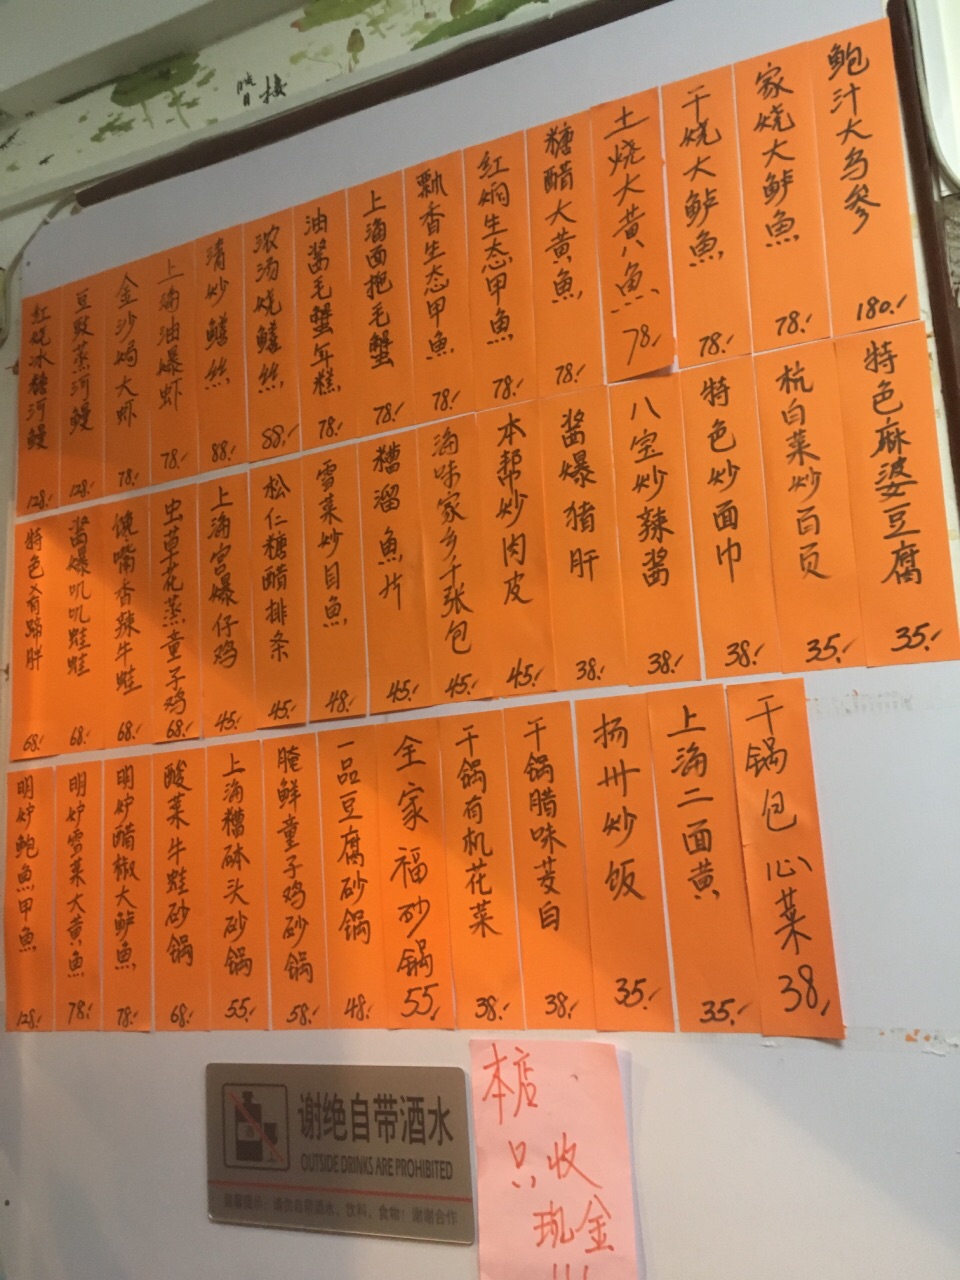 晓楼
鲍汁大乌参 180.-
家烧大鲈鱼 78.-
干烧大鲈鱼 78.-
土烧大黄鱼 78.-
糖醋大黄鱼 78.-
红焖生态甲鱼 78.-
飘香生态甲鱼 78.-
上海面拖毛蟹 78.-
油酱毛蟹年糕 78.-
浓汤烧鳝丝 88.-
清炒鳝丝 88.-
上海油爆虾 78.-
金沙焗大虾 78.-
豆豉蒸河鳗 128.-
红烧冰糖河鳗 128.-
特色麻婆豆腐 35.-
杭白菜炒百页 35.-
特色炒面巾 38.-
八宝炒辣酱 38.-
酱爆猪肝 38.-
本帮炒肉皮 45.-
海味家乡千张包 45.-
糟溜鱼片 45.-
雪菜炒目鱼 48.-
松仁糖醋排条 45.-
上海宫爆仔鸡 45.-
虫草花蒸童子鸡 68.-
馋嘴香辣牛蛙 68.-
酱爆叽叽蛙蛙 68.-
特色 蹄胖 68.-
干锅包心菜 38,
上海二面黄 35.-
扬州炒饭 35.-
干锅腊味茭白 38.-
干锅有机花菜 38.-
全家福砂锅 55,
一品豆腐砂锅 48.-
腌鲜童子鸡砂锅 58.-
上海糟砵头砂锅 55.-
酸菜牛蛙砂锅 68.-
明炉醋椒大鲈鱼 78.-
明炉雪菜大黄鱼 78.-
明炉鲍鱼甲鱼 128.-
谢绝自带酒水
OUTSIDE DRINKS ARE PROHIBITED
温馨提示：请勿自带酒水、饮料、食物！谢谢合作
本店
只收
现金
!!!